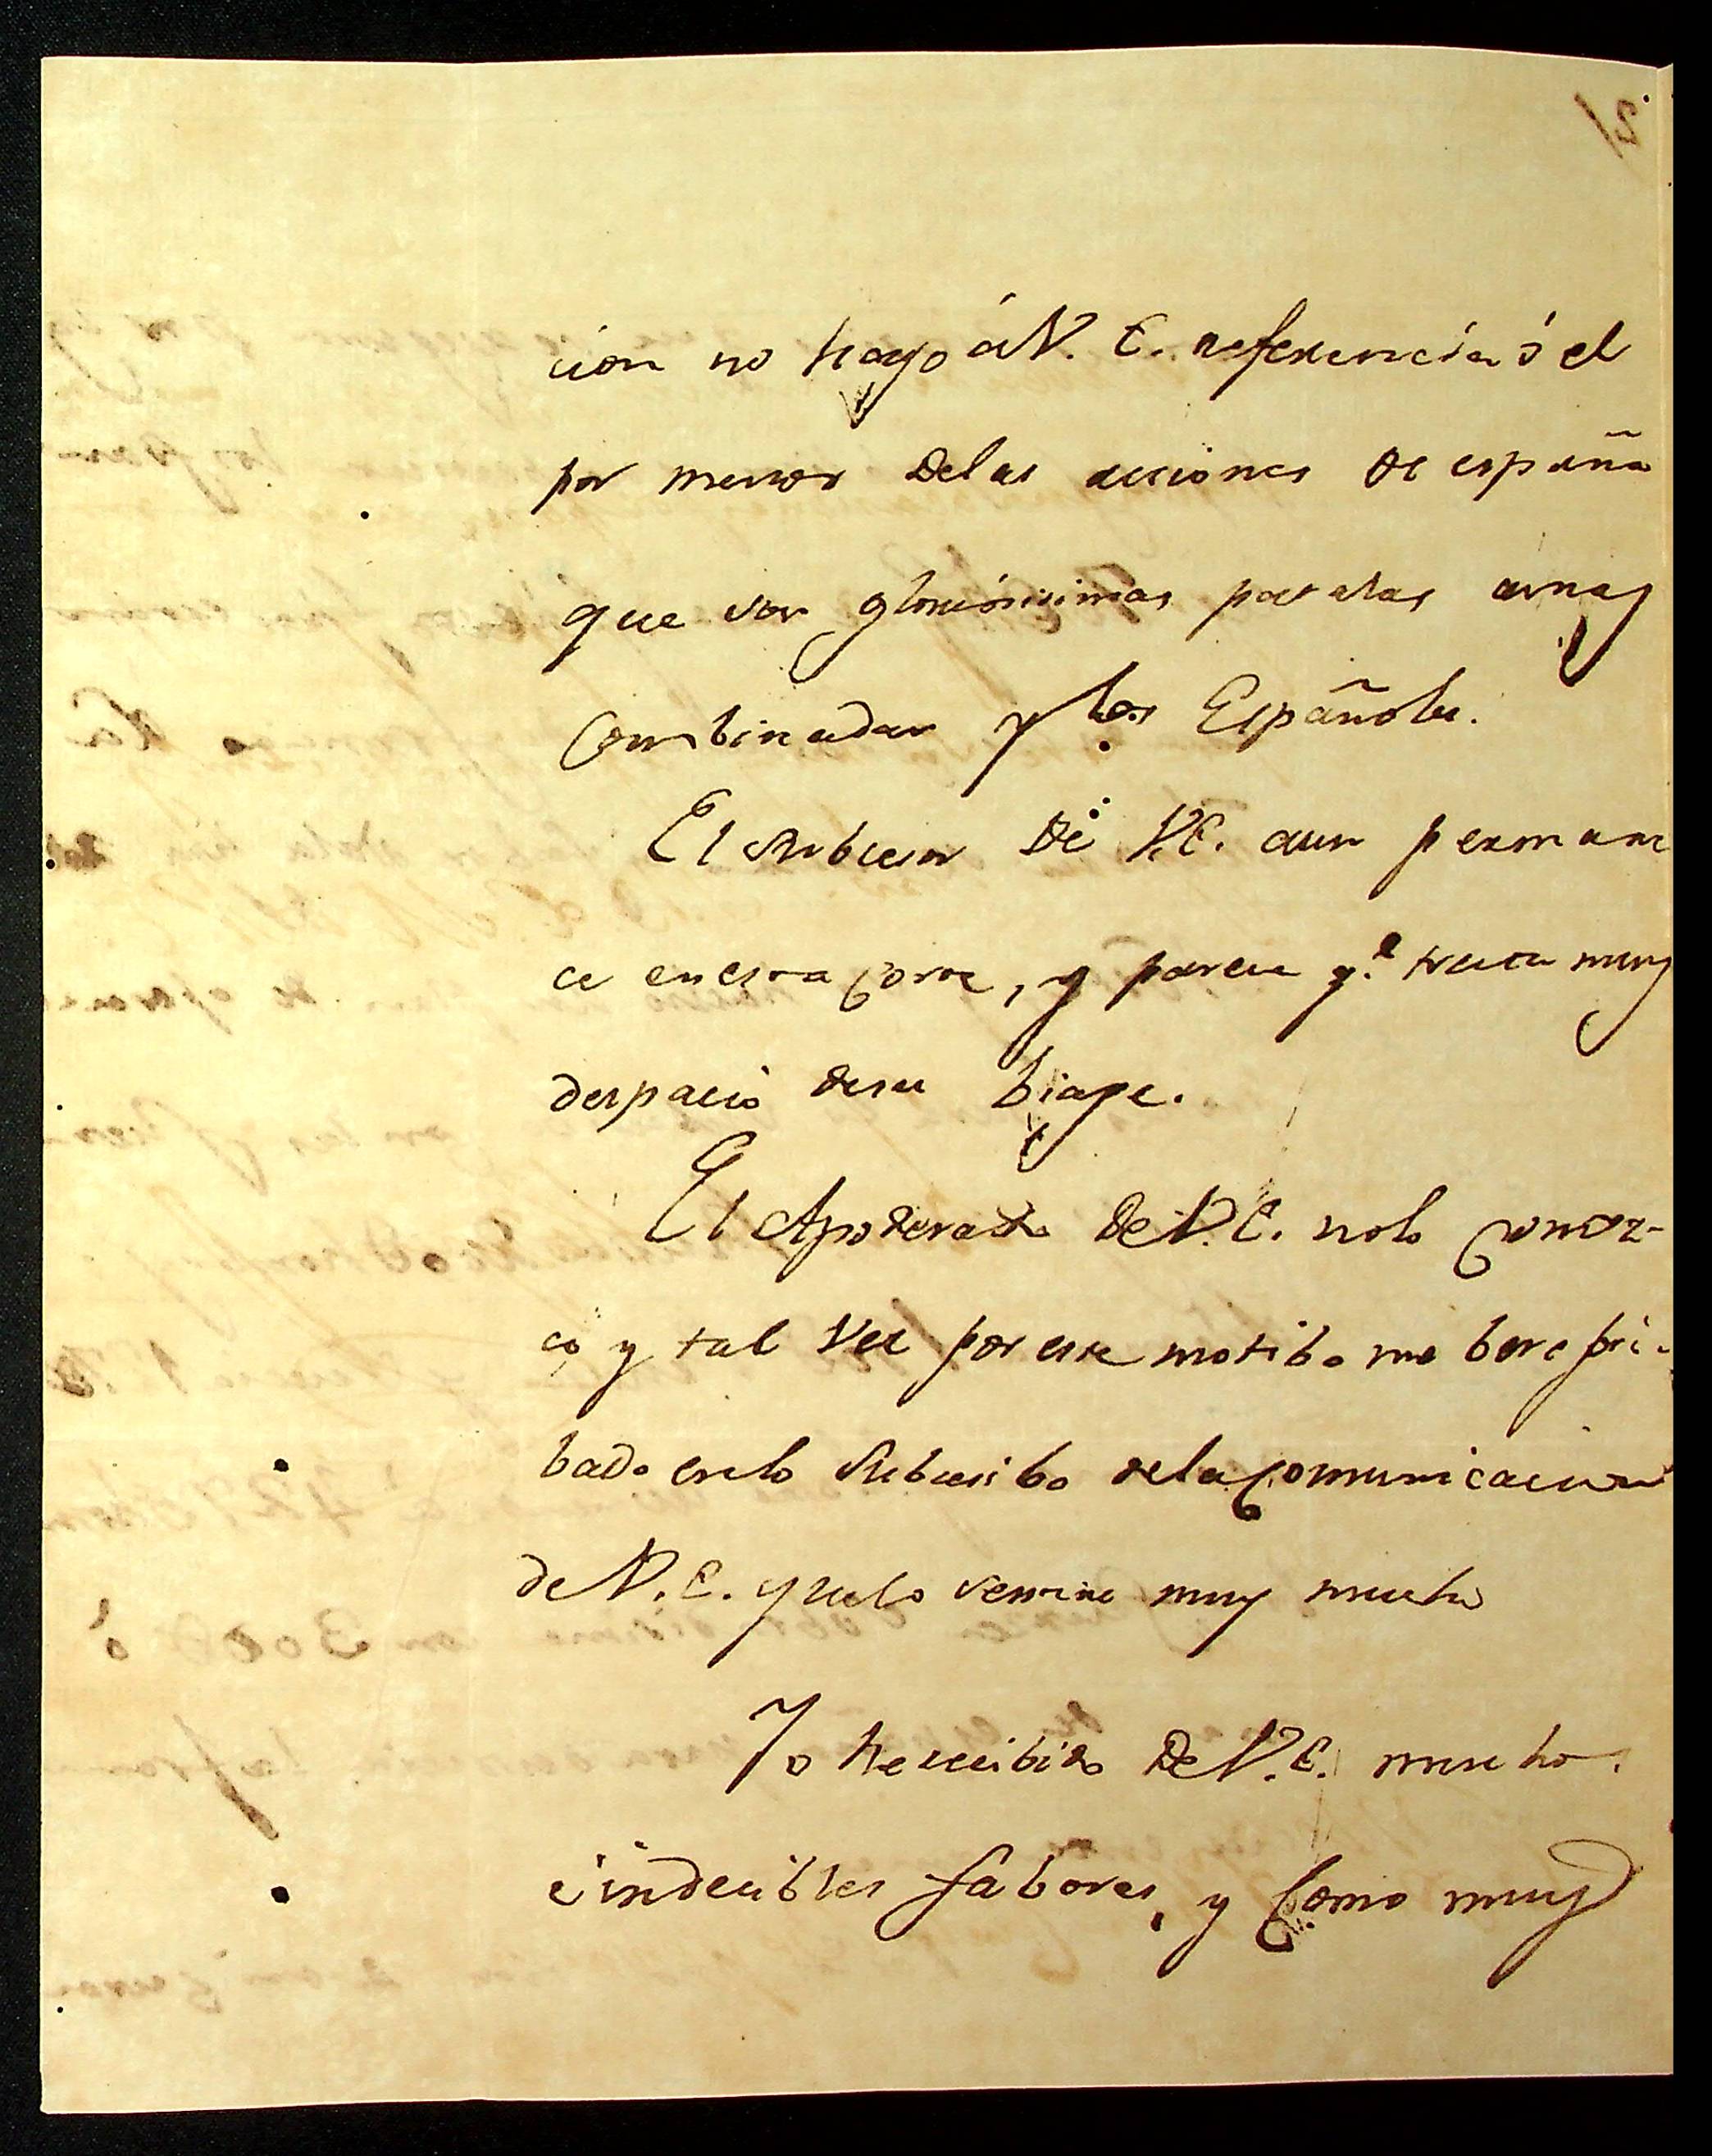 cion no hago á V. E. referencia ó el
por menor delas acciones de españa
que son gloriosisimas para las armas
Combinadas y las Españolas.
El Subcesor De V.E. aun permane
ce en esta Corte, y parece q.e trata muy
despacio desu biage.
El Apoderado de V. E. nolo Conoz-
co y tal vez por este motibo me bere pri-
bado enlo Subcesibo dela Comunicacion
de V. E. q.e lo sentire muy mucho
Yo he recibido De V. E. muchos
é indecibles fabores, y Como muy